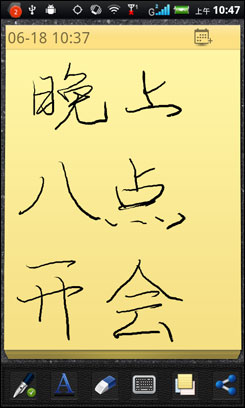 上午 10:47
06-18 10:37
晚上
八点
开会